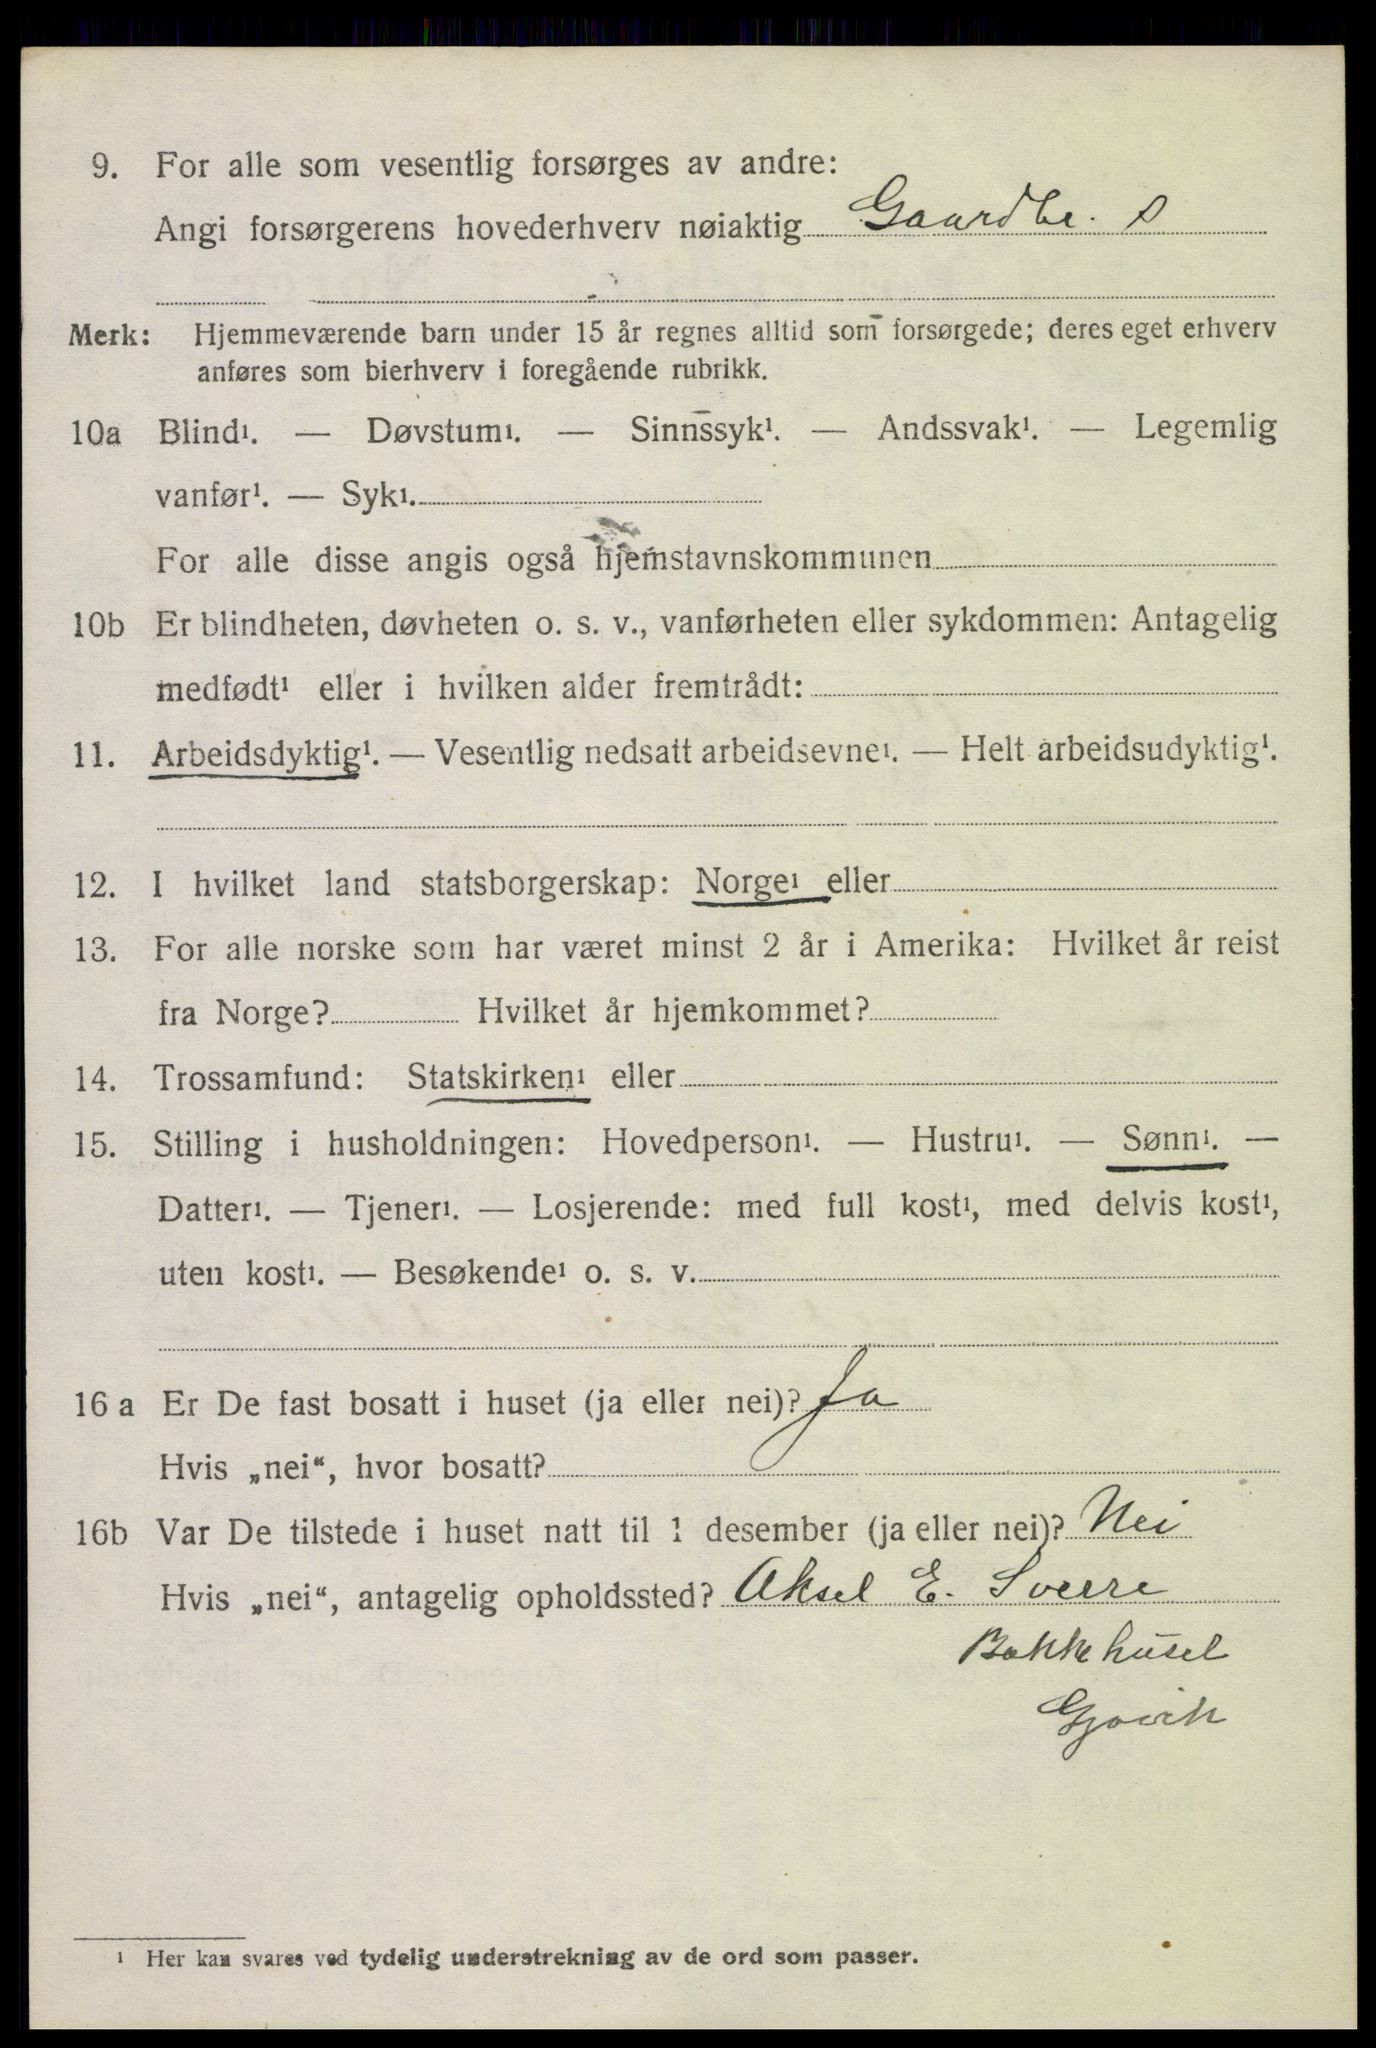 9. For alle som vesentlig forsørges av andre:
Angi forsørgerens hovederhverv nøiaktig Gaardbr. s
Merk: Hjemmeværende barn under 15 år regnes alltid som forsørgede; deres eget erhverv
anføres som bierhverv i foregående rubrikk.
10a Blind¹. — Døvstum¹. — Sinnssyk¹. — Andssvak¹. — Legemlig
vanfør¹. — Syk¹.
For alle disse angis også hjemstavnskommunen
10b Er blindheten, døvheten o. s. v., vanførheten eller sykdommen: Antagelig
medfødt¹ eller i hvilken alder fremtrådt:
11. Arbeidsdyktig¹. — Vesentlig nedsatt arbeidsevne¹. — Helt arbeidsudyktig¹.
12. I hvilket land statsborgerskap: Norge¹ eller
13. For alle norske som har været minst 2 år i Amerika: Hvilket år reist
fra Norge? Hvilket år hjemkommet?
14. Trossamfund: Statskirken¹ eller
15. Stilling i husholdningen: Hovedperson¹. — Hustru¹. — Sønn¹. —
Datter¹. — Tjener¹. — Losjerende: med full kost¹, med delvis kost¹,
uten kost¹. — Besøkende¹ o. s. v.
16 a Er De fast bosatt i huset (ja eller nei)? Ja
Hvis „nei“, hvor bosatt?
16b Var De tilstede i huset natt til 1 desember (ja eller nei)? Nei
Hvis „nei“, antagelig opholdssted? Aksel E. Sverre
Bakkehusel
Gjøvik
¹ Her kan svares ved tydelig understrekning av de ord som passer.